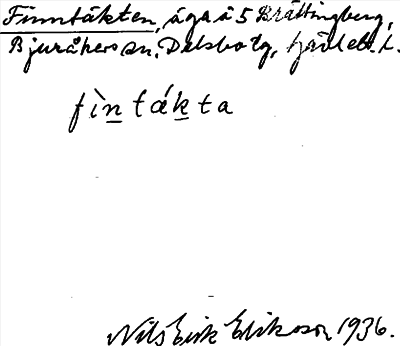 Finntäkten, äga å 5 Brättingberg,
Bjuråkers sn, Delsbo tg, Gävleb. l.
fìn tákta
Nils Eirk Erikson 1936.